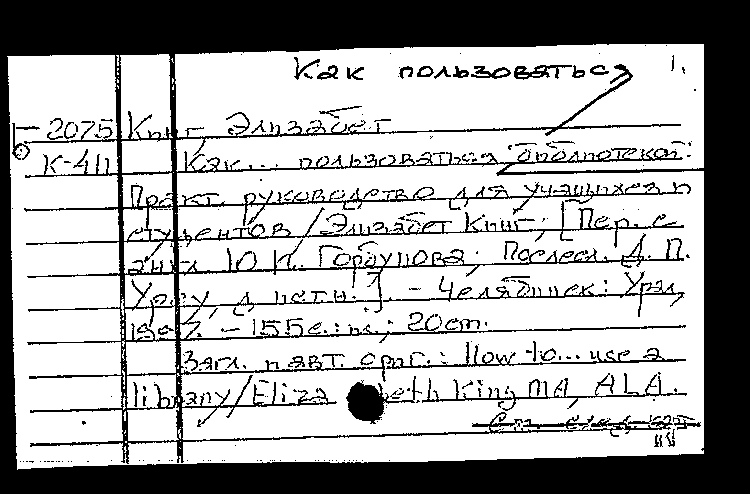 Как пользоваться 1.
Г-2075 Кинг, Элизабет
К-411 Как... пользоваться библиотекой:
Практ. руководство для учащихся и
студентов / Элизабет Кинг; [Пер. с
англ. Ю.К. Горбунова; Послесл. Д.П.
Урсу, д. ист. н.]. - Челябинск: Урал,
1997. - 155 с.: ил.; 20 cm.
Загл. и авт. ориг.: How to... use a
library/Elizabeth King MA, ALA.
См. след. кат.